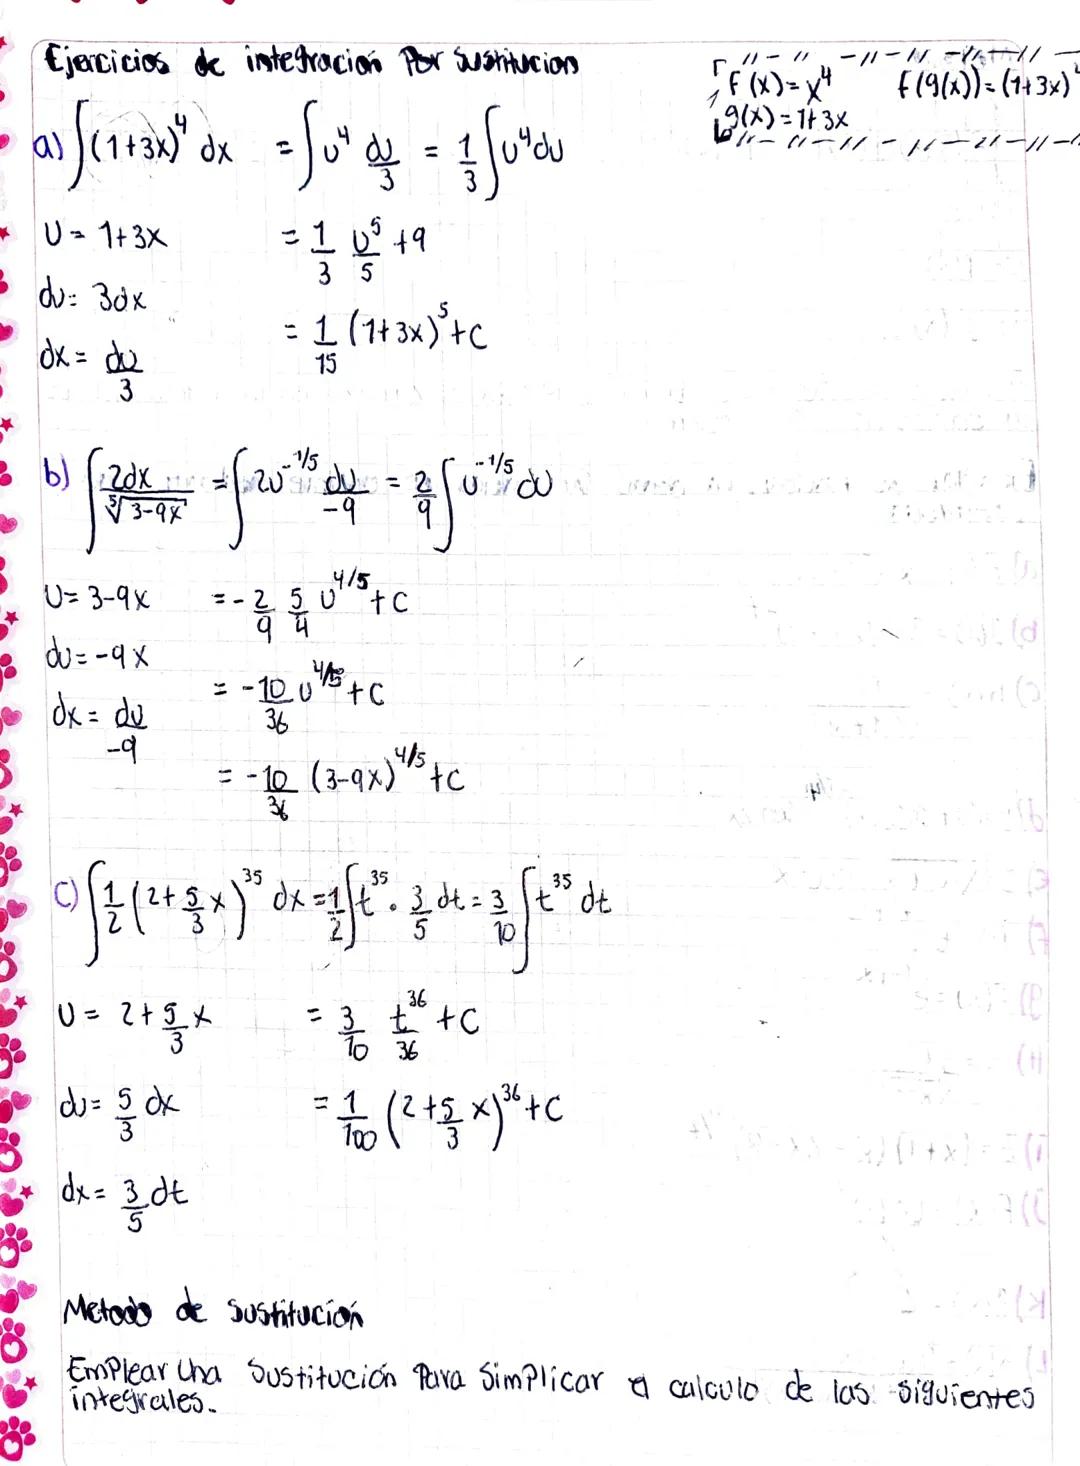 Ejercicios de integración Por Sustitucion
f(x)=x⁴ f(g(x))=(1+3x)⁴
g(x)=1+3x
a) ∫(1+3x)⁴ dx = ∫u⁴ du/3 = 1/3 ∫u⁴du
U = 1+3x = 1/3 u⁵/5 +9
du= 3dx
= 1/15 (1+3x)⁵+C
dx = du/3
b) ∫ 2dx/⁵√(3-9x) = ∫2u^(-1/5) du/-9 = 2/9 ∫u^(-1/5) du
U= 3-9x = -2/9 5/4 u^(4/5) +C
du=-9x
= -10/36 u^(4/5) +C
dx = du/-9
= -10/36 (3-9x)^(4/5) +C
c) ∫1/2 (2+5/3 x)³⁵ dx = 1/2 ∫t³⁵ · 3/5 dt = 3/10 ∫t³⁵ dt
U = 2+5/3 x = 3/10 t³⁶/36 +C
du= 5/3 dx = 1/100 (2+5/3 x)³⁶ +C
dx = 3/5 dt
Metodo de Sustitución
Emplear Una Sustitución Para Simplicar el calculo de las siguientes
integrales.